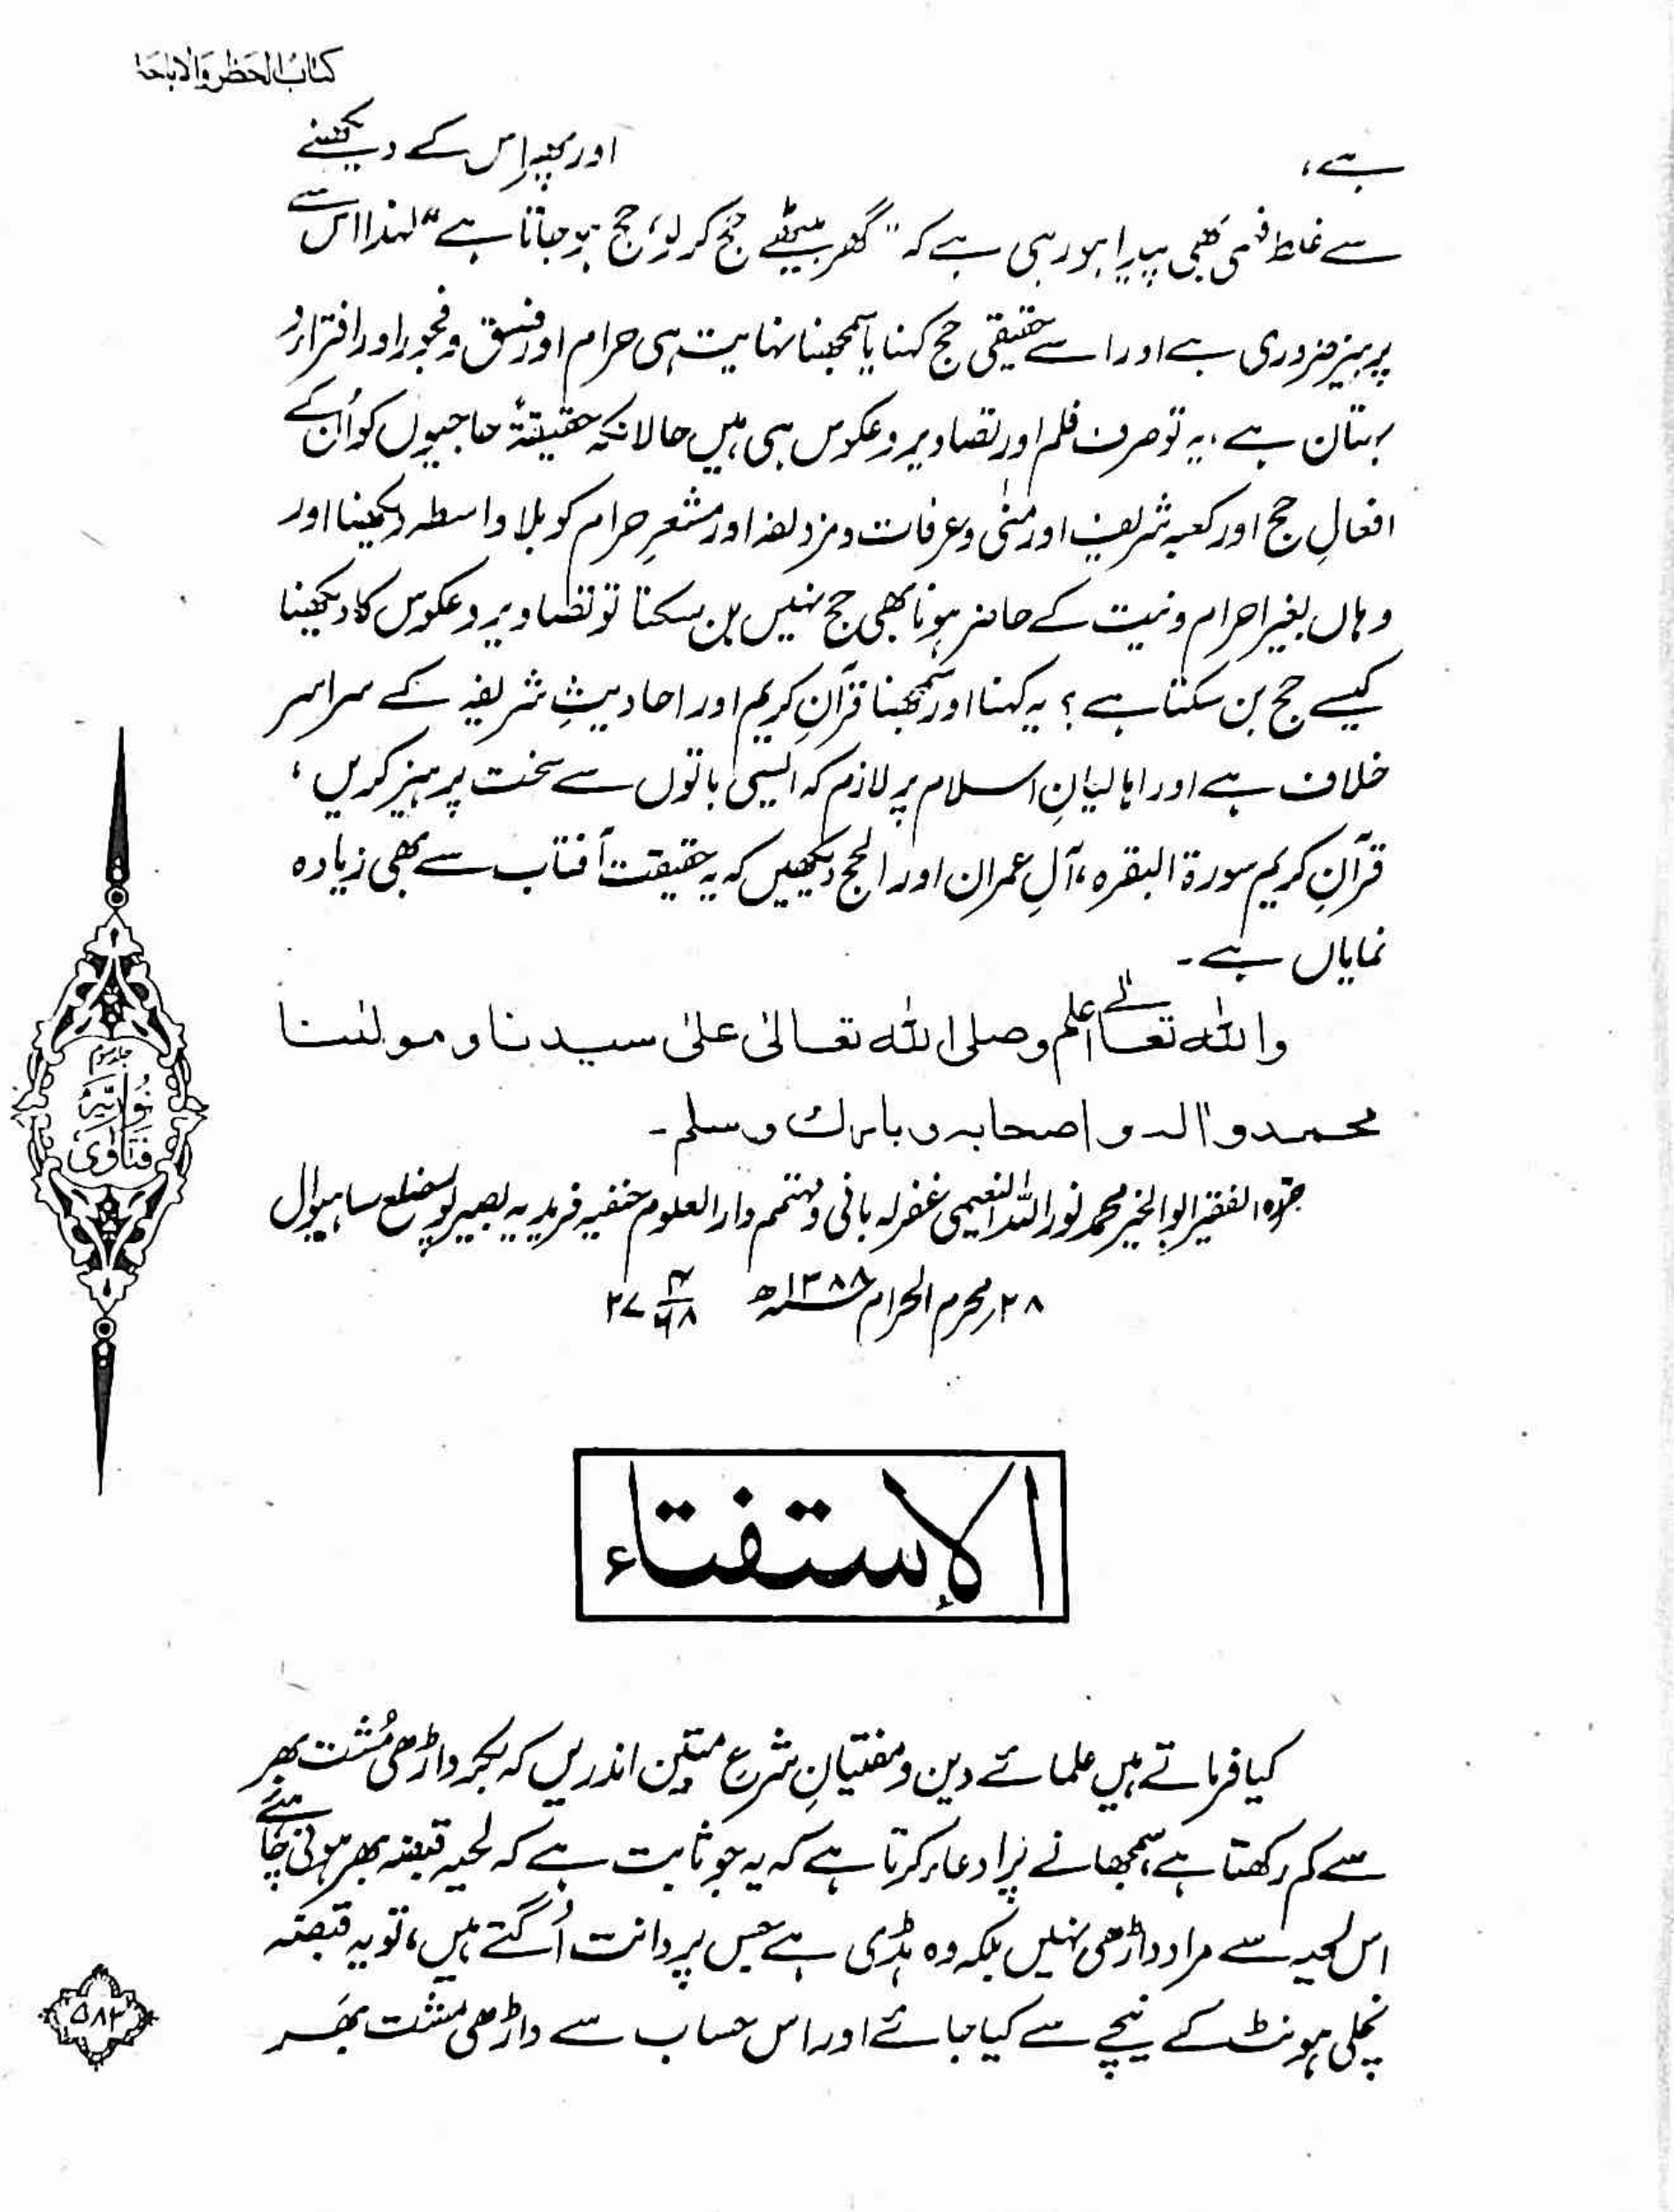 کتاب الحظر والاباحۃ
ہے، اور پھر اس کے دیکھنے
سے غلط فہمی بھی پیدا ہو رہی ہے کہ "گھر بیٹھے حج کر لو، حج ہو جاتا ہے" لہذا اس سے
پرہیز ضروری ہے اور اسے حقیقی حج کہنا یا سمجھنا نہایت ہی حرام اور فسق و فجور اور افتراء و
بہتان ہے، یہ تو صرف فلم اور تصاویر و عکوس ہی ہیں حالانکہ حقیقۃً حاجیوں کو اُن کے
افعالِ حج اور کعبہ شریف اور منیٰ و عرفات و مزدلفہ اور مشعرِ حرام کو بلا واسطہ دیکھنا اور
وہاں بغیر احرام و نیت کے حاضر ہونا بھی حج نہیں بن سکتا تو تصاویر و عکوس کا دیکھنا
کیسے حج بن سکتا ہے؟ یہ کہنا اور سمجھنا قرآنِ کریم اور احادیثِ شریفہ کے سراسر
خلاف ہے اور اہالیانِ اسلام پر لازم کہ ایسی باتوں سے سخت پرہیز کریں،
قرآنِ کریم سورۃ البقرہ، آلِ عمران اور الحج دیکھیں کہ یہ حقیقت آفتاب سے بھی زیادہ
نمایاں ہے۔
واللہ تعالیٰ اعلم وصلی اللہ تعالیٰ علیٰ سیدنا و مولٰنا
محمد و اٰلہ و اصحابہ و بارک وسلم۔
حررہ الفقیر ابو الخیر محمد نور اللہ النعیمی غفرلہ بانی و مہتمم دار العلوم حنفیہ فریدیہ بصیر پور ضلع ساہیوال
۲۸؍محرم الحرام ۱۳۸۸ھ ۲۷/۴/۶۸
جلد سوم
فتاوی نوریہ
الاستفتاء
کیا فرماتے ہیں علمائے دین و مفتیانِ شرعِ متین اندریں کہ بکر داڑھی مُشت بھر
سے کم رکھتا ہے، سمجھانے پر ادعاء کرتا ہے کہ یہ جو ثابت ہے کہ لحیہ قبضہ بھر ہونی چاہئے
اس لحیہ سے مراد داڑھی نہیں بلکہ وہ ہڈی ہے جس پر دانت اُگتے ہیں، تو یہ قبضہ
نچلی ہونٹ کے نیچے سے کیا جائے اور اس حساب سے داڑھی مشت بھر
۵۸۳